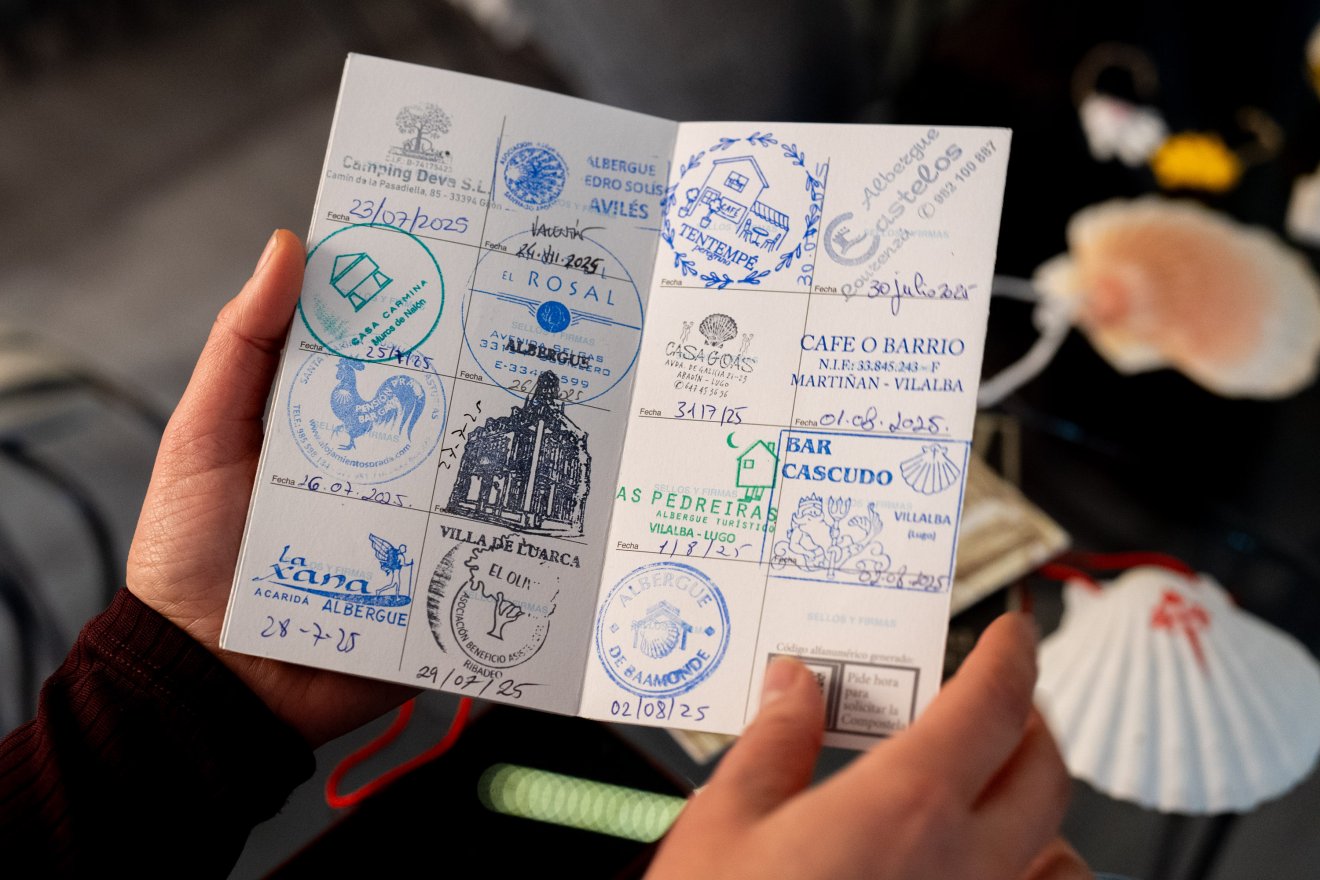 C.I.F. B-74175423
Camping Deva S.L.
Camin de la Pasadiella, 85 - 33394 Gijón
Fecha 23/07/2025
ASOCIACIÓN
ALBERGUE
PEDRO SOLÍS
AVILÉS
VALENTÍN
Fecha 24.VII.2025
CASA CARMINA
Muros de Nalón
Fecha 25/7/25
EL ROSAL
SELLOS Y FIRMAS
ALBERGUE
PENSIÓN
BAR GAYO
SELLOS Y FIRMAS
www.alojamientosoracia.com
Fecha 26.07.2025.
27-7-25
VILLA DE LUARCA
la
xana
SELLOS Y FIRMAS
ACARIDA ALBERGUE
28-7-25
EL OLI
SELLOS Y FIRMAS
ASOCIACIÓN BENEFICIO
RIBADEO
29/07/25
CAFÉ
TENTEMPÉ
peregrino
Fecha
Albergue
Castelos
Lourenzá
982 100 887
SELLOS Y FIRMAS
Fecha 30 julio 2025
CASA GOÁS
AVDA. DE GALICIA 21-23
ABADÍN - LUGO
Fecha 31/7/25
CAFE O BARRIO
N.I.F: 33.845.243 – F
MARTIÑAN - VILALBA
Fecha 01.08.2025.
SELLOS Y FIRMAS
AS PEDREIRAS
ALBERGUE TURÍSTICO
VILALBA - LUGO
Fecha 1/8/25
BAR
CASCUDO
VILLALBA
(Lugo)
Fecha 02.08.2025
ALBERGUE
DE BAAMONDE
02/08/25
SELLOS Y FIRMAS
Código alfanumérico generado:
Pide hora
para
solicitar la
Compostela